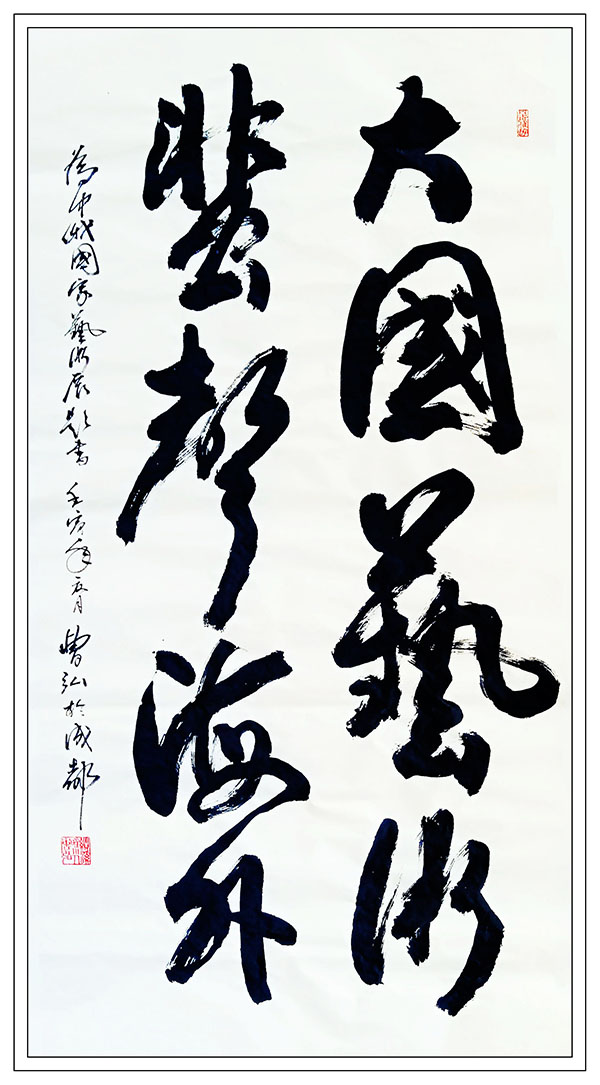 大國藝術
蜚聲海外
為中俄國家藝術展題書 壬寅年五月 曾弘於成都